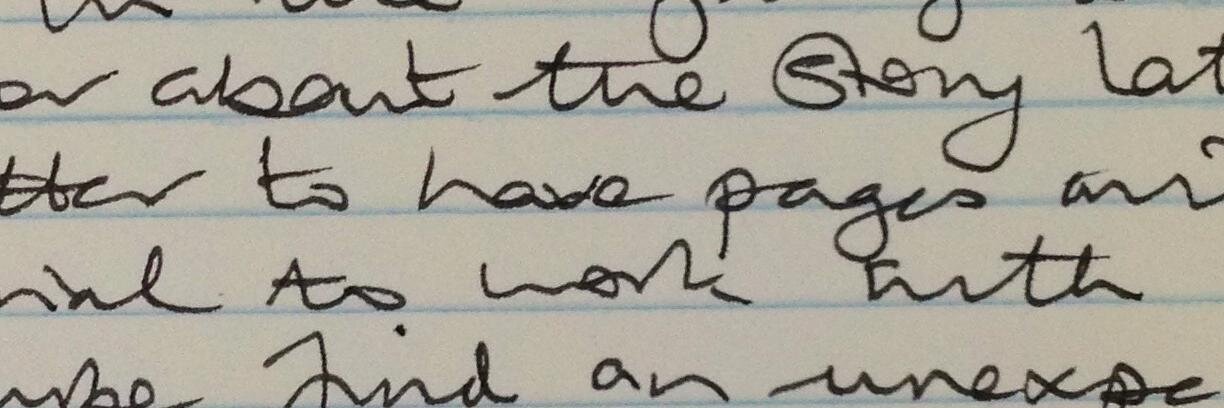 or about the story lat
tter to have pages
rial to work with
find an unexpe